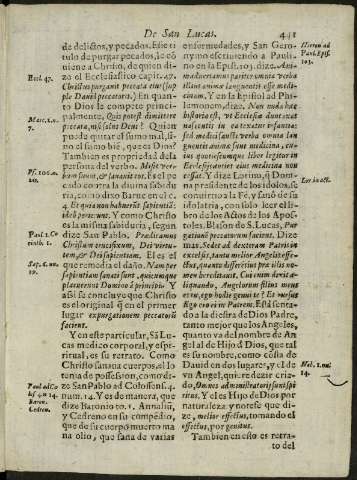 De San Lucas. 441
de delictos, y pecados. Este ti
tulo de purgar pecados, le cõ
uiene a Christo, de quien di-
zo el Ecclesiastico capit. 47.
Christus purgauit peccata eius (sup
ple Dauid peccatoris) En quan-
to Dios le compete princi-
palmente, Quis potest dimittere
peccata, nisi solus Deus? Quien
puede quitar el sumo mal, si-
no el sumo bié, que es Dios?
Tambien es propriedad de la
persona del verbo. Misit ver-
bum suum, & sanauit eos. Es el pe
cado contra la diuina sabidu
ria, como dixo Baruc en el c.
Et quia non habuerũt sapientiã:
ideò perierunt. Y como Christo
es la misma sabiduria, segun
dize san Pablo. Prædicamus
Christum crucifixum, Dei virtu-
tem, & Dei sapientiam. El es el
que remedia el daño. Nam per
sapientiam sanati sunt, quicumque
placuerunt Domino à principio. Y
assi se concluye que Christo
es el original q̃ en el primer
lugar expurgationem peccatorũ
facient.
Y en este particular, Sã Lu-
cas medico corporal, y espi-
ritual, es su retrato. Como
Christo sanaua cuerpos, assi lo
tenia de possession, como di-
ze San Pablo ad Colossens. 4.
num. 14. Y es de manera, que
dize Baronio to. 1. Annaliũ,
y Cedreno en su compẽdio,
que de su cuerpo muerto ma
na olio, que sana de varias
enfermedades, y San Gero-
nymo escriuiendo a Pauli-
no en la Epist. 103. dize. Ani-
maduertamus pariter omnia verba
illius animæ languentis esse medi-
cinam. Y en la Epistol ad Phi-
lemonem, dize. Non nuda hæc
historia est,
sed medici sanctæ verba contra lan
guentis animæ sunt medicina, cu-
ius quotiescumque liber legitur in
Ecclesijs toties eius medicina non
cessat. Y dize Lorino, q̃ Dona
na presidente de los idolos, se
conuirtio a la Fè, y sanò de su
idolatria, con solo leer el li-
bro de los Actos de los Apos-
toles. Blason de S. Lucas, Pur
gationẽ peccatorum faciens. Dize
mas, Sedet ad dexteram Patris in
excelsis, tanto melior Angelis effe-
ctus, quanto differentius præ illis no-
men hereditauit. Cui enim dixit a-
liquando, Angelorum filius meus
es tu, ego hodie genui te? Et rursus
Ego ero ei in Patrem. Està senta-
do a la diestra de Dios Padre,
tanto mejor que los Angeles,
quanto va del nombre de An-
gel al de Hijo de Dios, que tal
es su nombre, como cosa de
Dauid en dos lugares, y el de
vn Angel, qui era dezir cria-
do, Omnes administratorij sunt spi-
ritus. Y el es Hijo de Dios por
naturaleza y notese que di-
ze, melior effectus, tomando el
effectus, por genitus.
Tambien en esto es retra-
to del
Eccl. 47.
Marc. 2. n.
7.
Ps. 106. n.
20.
Paul 1. Co
rinth. 1.
Sap. 6. nu.
19.
Paul ad Co
loss. 4. n 14.
Baron.
Cedren.
Hieron ad
Paul. Epis.
103.
Lor in act.
Heb. 1. nu.
14.